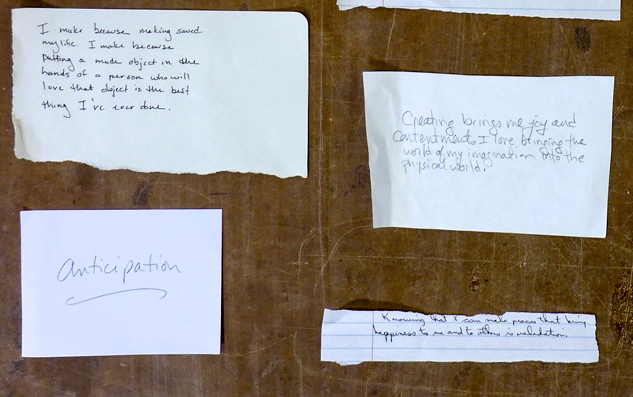 I make because making saved
my life. I make because
putting a made object in the
hands of a person who will
love that object is the best
thing I've ever done.
Creating brings me joy and
contentment. I love bringing the
world of my imagination into the
physical world.
Anticipation
Knowing that I can make pieces that bring
happiness to me and to others is validation.